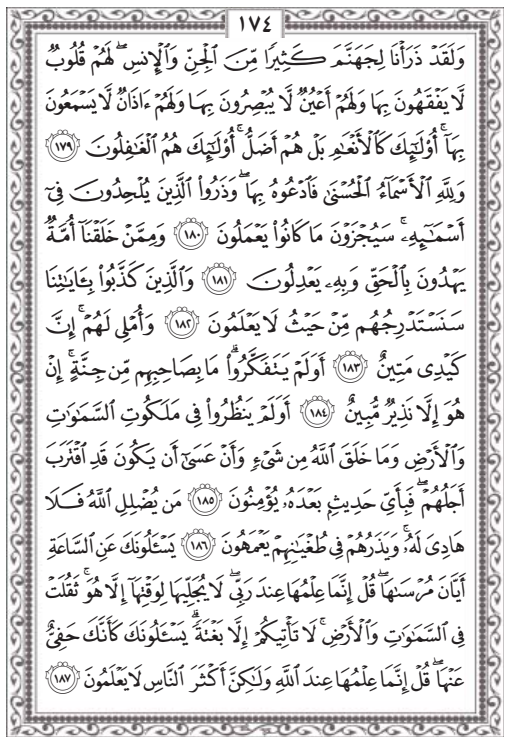 ١٧٤
وَلَقَدْ ذَرَأْنَا لِجَهَنَّمَ كَثِيرًا مِّنَ ٱلْجِنِّ وَٱلْإِنسِ ۖ لَهُمْ قُلُوبٌ
لَّا يَفْقَهُونَ بِهَا وَلَهُمْ أَعْيُنٌ لَّا يُبْصِرُونَ بِهَا وَلَهُمْ ءَاذَانٌ لَّا يَسْمَعُونَ
بِهَآ ۚ أُو۟لَٰٓئِكَ كَٱلْأَنْعَٰمِ بَلْ هُمْ أَضَلُّ ۚ أُو۟لَٰٓئِكَ هُمُ ٱلْغَٰفِلُونَ ١٧٩
وَلِلَّهِ ٱلْأَسْمَآءُ ٱلْحُسْنَىٰ فَٱدْعُوهُ بِهَا ۖ وَذَرُوا۟ ٱلَّذِينَ يُلْحِدُونَ فِىٓ
أَسْمَٰٓئِهِۦ ۚ سَيُجْزَوْنَ مَا كَانُوا۟ يَعْمَلُونَ ١٨٠ وَمِمَّنْ خَلَقْنَآ أُمَّةٌ
يَهْدُونَ بِٱلْحَقِّ وَبِهِۦ يَعْدِلُونَ ١٨١ وَٱلَّذِينَ كَذَّبُوا۟ بِـَٔايَٰتِنَا
سَنَسْتَدْرِجُهُم مِّنْ حَيْثُ لَا يَعْلَمُونَ ١٨٢ وَأُمْلِى لَهُمْ ۚ إِنَّ
كَيْدِى مَتِينٌ ١٨٣ أَوَلَمْ يَتَفَكَّرُوا۟ ۗ مَا بِصَاحِبِهِم مِّن جِنَّةٍ ۚ إِنْ
هُوَ إِلَّا نَذِيرٌ مُّبِينٌ ١٨٤ أَوَلَمْ يَنظُرُوا۟ فِى مَلَكُوتِ ٱلسَّمَٰوَٰتِ
وَٱلْأَرْضِ وَمَا خَلَقَ ٱللَّهُ مِن شَىْءٍ وَأَنْ عَسَىٰٓ أَن يَكُونَ قَدِ ٱقْتَرَبَ
أَجَلُهُمْ ۖ فَبِأَىِّ حَدِيثٍۭ بَعْدَهُۥ يُؤْمِنُونَ ١٨٥ مَن يُضْلِلِ ٱللَّهُ فَلَا
هَادِىَ لَهُۥ ۚ وَيَذَرُهُمْ فِى طُغْيَٰنِهِمْ يَعْمَهُونَ ١٨٦ يَسْـَٔلُونَكَ عَنِ ٱلسَّاعَةِ
أَيَّانَ مُرْسَىٰهَا ۖ قُلْ إِنَّمَا عِلْمُهَا عِندَ رَبِّى ۖ لَا يُجَلِّيهَا لِوَقْتِهَآ إِلَّا هُوَ ۚ ثَقُلَتْ
فِى ٱلسَّمَٰوَٰتِ وَٱلْأَرْضِ ۚ لَا تَأْتِيكُمْ إِلَّا بَغْتَةً ۗ يَسْـَٔلُونَكَ كَأَنَّكَ حَفِىٌّ
عَنْهَا ۖ قُلْ إِنَّمَا عِلْمُهَا عِندَ ٱللَّهِ وَلَٰكِنَّ أَكْثَرَ ٱلنَّاسِ لَا يَعْلَمُونَ ١٨٧